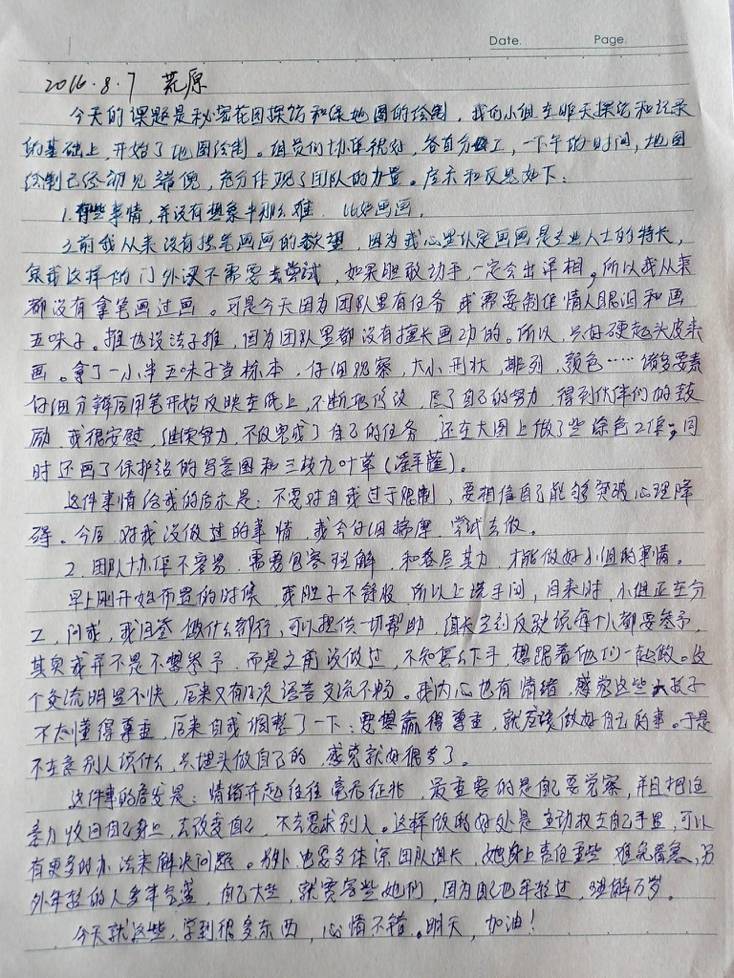 Date.
Page.
2016.8.7 荒原
今天的课题是秘密花园探访和保地图的绘制，我们小组在昨天探访和记录
的基础上，开始了地图绘制。组员们协作很好，各自分工，一下午的时间，地图
绘制已经初见端倪，充分体现了团队的力量。启示和反思如下：
1.有些事情，并没有想象中那么难，比如画画。
之前我从来没有拿笔画画的欲望，因为我心里认定画画是专业人士的特长，
象我这样的门外汉不需要去尝试，如果胆敢动手一定会出洋相，所以我从来
都没有拿笔画过画。可是今天因为团队里有任务 我需要制作情人眼泪和画
五味子。推也没法子推，因为团队里都没有擅长画功的。所以，只好硬起头皮来
画。拿了一小半五味子当标本，仔细观察，大小 形状，排列，颜色……诸多要素
仔细分辨后用笔开始反映在纸上，不断地修改，尽了自己的努力 得到伙伴们的鼓
励 我很安慰，继续努力，不仅完成了自己的任务 还在大图上做了些绿色工作；同
时还画了保护站的写意图和三枝九叶草（淫羊藿）。
这件事情给我的启示是：不要对自我过于限制，要相信自己能够突破心理障
碍。今后 对我没做过的事情，我会仔细揣摩 尝试去做。
2.团队协作不容易 需要包容理解 和各尽其力 才能做好小组的事情。
早上刚开始布置的时候 我肚子不舒服 所以上洗手间，回来时 小组正在分
工，问我，我回答 做什么都行，可以提供一切帮助，组长立刻反驳说每个人都要参予，
其实我并不是不想参予 而是之前没做过，不知怎么下手 想跟着他们一起做。这
个交流明显不快，后来又有几次语言交流不畅。我内心也有情绪，感觉这些大孩子
不太懂得尊重，后来自我调整了一下：要想赢得尊重，就应该做好自己的事。于是
不在意别人说什么，只埋头做自己的，感觉就好很多了。
这件事的启发是：情绪升起往往毫无征兆 最重要的是自己要觉察，并且把注
意力收回自己身上，去改变自己，不去要求别人。这样做的好处是主动权在自己手里，可以
有更多的办法来解决问题。另外 也要多体谅团队组长，她身上责任重些 难免着急，另
外年轻的人多年气盛，自己大些，就宽容些她们，因为自己也年轻过，理解万岁。
今天就这些，学到很多东西，心情不错。明天，加油！